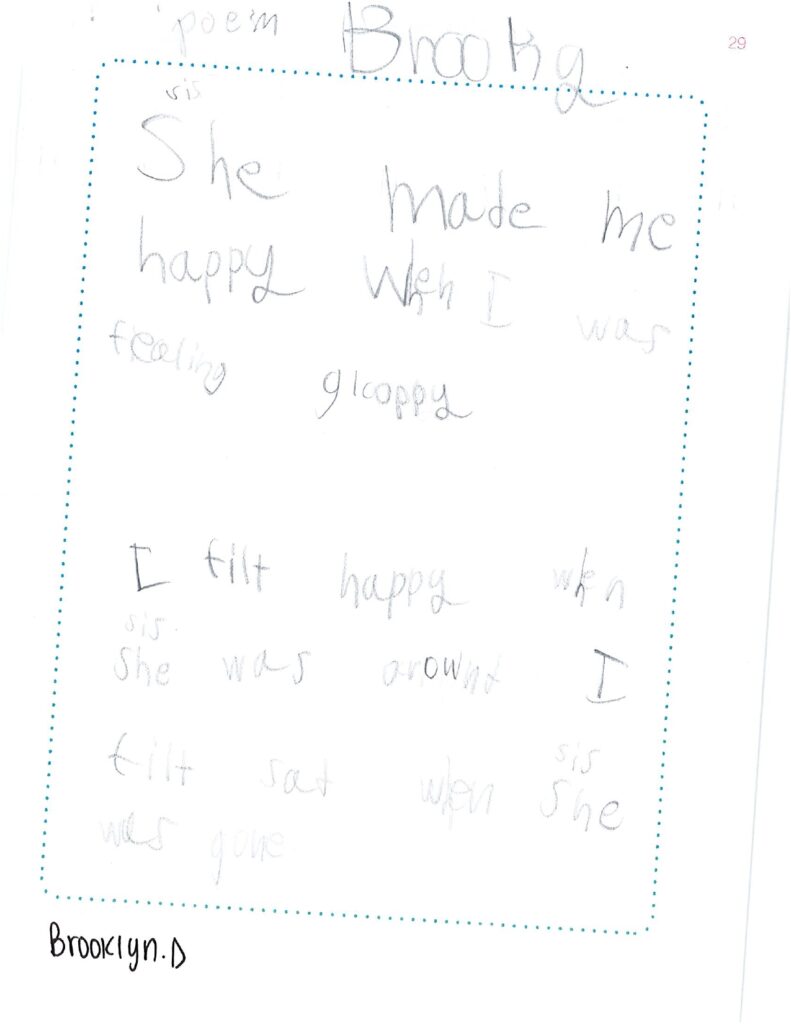 poem Brooky
29
sis
She made me
happy when I was
fealing gloppy
I filt happy when
sis
she was arownd I
filt sad when she
sis
was gone
Brooklyn.D